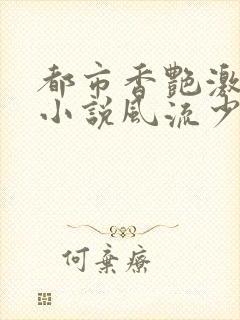 都市香艷激
小說風流少
何棄療